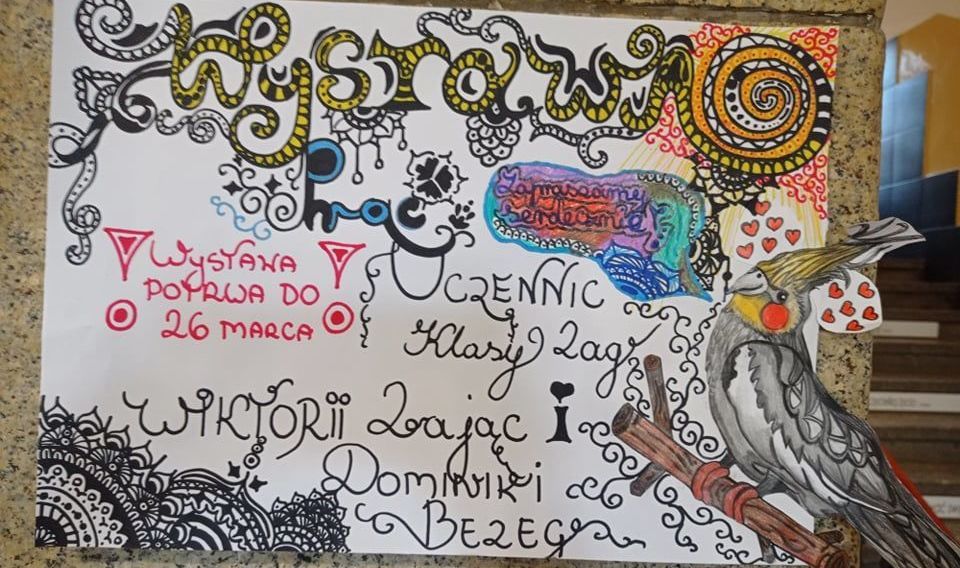 Wystawa
Prac
Zapraszamy
serdecznie!
WYSTAWA
POTRWA DO
26 MARCA
UCZENNIC
Klasy 2ag
WIKTORii Zając i
DOMINIKi
BEZEG